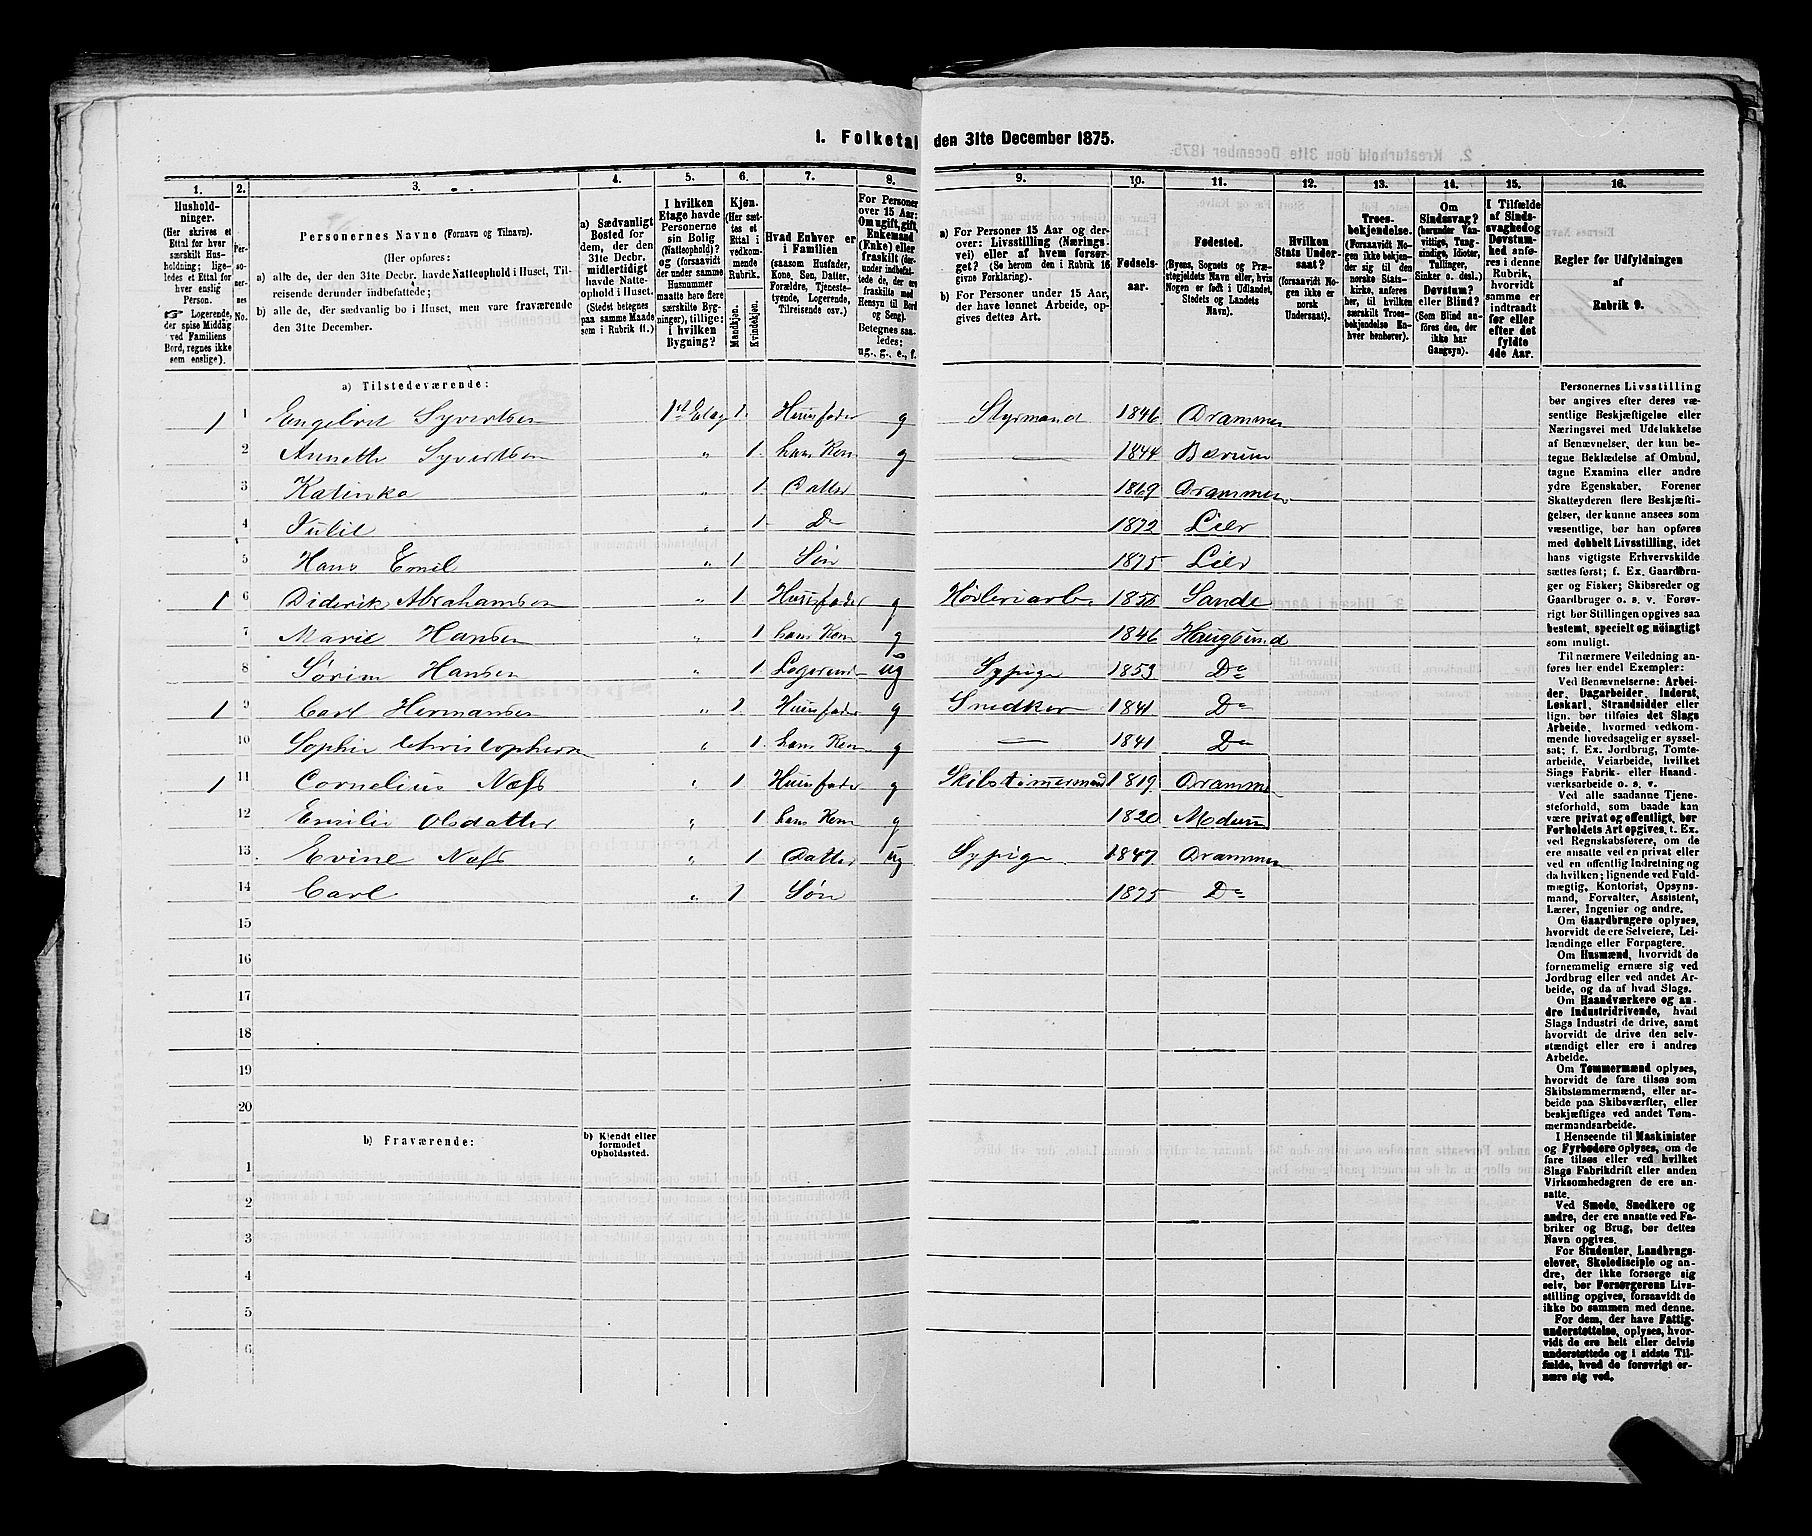 1. Folketal den 31te December 1875.
1. 2. 3. 4. 5. 6. 7. 8. 9. 10. 11. 12. 13. 14. 15. 16.
Hushold-
ninger.
(Her skrives et
Ettal for hver
særskilt Hus-
holdning; lige-
ledes et Ettal for
hver enslig
Person.
☞ Logerende,
der spise Middag
ved Familiens
Bord, regnes ikke
som enslige).
Per-
so-
ner-
nes
No.
Personernes Navne (Fornavn og Tilnavn).
(Her opføres:
a) alle de, der den 31te Decbr. havde Natteophold i Huset, Til-
reisende derunder indbefattede;
b) alle de, der sædvanlig bo i Huset, men vare fraværende
den 31te December.
a) Sædvanligt
Bosted for
dem, der den
31te Decbr.
midlertidigt
havde Natte-
ophold i Huset.
(Stedet betegnes
paa samme Maade
som i Rubrik 11.)
I hvilken
Etage havde
Personerne
sin Bolig
(Natteophold)?
og (forsaavidt
der under samme
Husnummer
maatte høre flere
særskilte Byg-
ninger), tillige:
i hvilken
Bygning?
Kjøn.
(Her sæt-
tes et
Ettal i
vedkom-
mende
Rubrik.
Mandkjøn.
Kvindekjøn.
Hvad Enhver er
i Familien
(saasom Husfader,
Kone, Søn, Datter,
Forældre, Tjeneste-
tyende, Logerende,
Tilreisende osv.)
For Personer
over 15 Aar:
Om ugift, gift,
Enkemand
(Enke) eller
fraskilt (der-
under indbefat-
tede de, der ere
fraskilte med
Hensyn til Bord
og Seng).
Betegnes saa-
ledes:
ug., g., e., f.
a) For Personer 15 Aar og der-
over: Livsstilling (Nærings-
vei) eller af hvem forsør-
get? (Se herom den i Rubrik 16
givne Forklaring).
b) For Personer under 15 Aar,
der have lønnet Arbeide, op-
gives dettes Art.
Fødsels-
aar.
Fødested.
(Byens, Sognets og Præ-
stegjeldets Navn eller, hvis
Nogen er født i Udlandet,
Stedets og Landets
Navn).
Hvilken
Stats Under-
saat?
(forsaavidt No-
gen ikke er
norsk
Undersaat).
Troes-
bekjendelse.
(Forsaavidt No-
gen ikke bekjen-
der sig til den
norske Stats-
kirke, anføres
her, til hvilken
særskilt Troes-
bekjendelse En-
hver henhører).
Om
Sindssvag?
(herunder Van-
vittige, Tung-
sindige, Idioter,
Tullinger,
Sinker o. desl.)
Døvstum?
eller Blind?
(Som Blind an-
føres den, der
ikke har
Gangsyn).
I Tilfælde
af Sinds-
svaghed og
Døvstum-
hed anfø-
res i denne
Rubrik,
hvorvidt
samme er
indtraadt
før eller
efter det
fyldte
4de Aar.
Regler for Udfyldningen
af
Rubrik 9.
a) Tilstedeværende:
1 1 Engebret Syvertsen 1st Etag 1. Huusfader g Styrmand 1846 Drammen
2 Annette Syvertsen „ 1. hans Kone g — 1844 Bærum
3 Katinka „ 1 Datter 1869 Drammen
4 Julie „ 1 Do 1872 Lier
5 Hans Emil „ 1 Søn 1875 Lier
1 6 Diderik Abrahamsen „ 1. Huusfader g Høvleriarb. 1850 Sande
7 Marie Hansen „ 1 hans Kone g 1846 Haugsund
8 Sørine Hansen „ 1 Logerende ug Sypige 1853 Do
1 9 Carl Hermansen „ 1. Huusfader g Snedker 1841 Do
10 Sophie Christophersen „ 1. hans Kone g — 1841 Do
1 11 Cornelius Næss „ 1 Huusfader g Skibstømermand 1819 Drammen
12 Emilie Olsdatter „ 1 hans Kone g 1820 Modum
13 Evine Næss „ 1 Datter ug Sypige 1847 Drammen
14 Carl „ 1 Søn 1875 Do
15
16
17
18
19
20
b) Fraværende:
b) Kjendt eller
formodet
Opholdssted.
1
2
3
4
5
6
Personernes Livsstilling
bør angives efter deres væ-
sentlige Beskjæftigelse eller
Næringsvei med Udelukkelse
af Benævnelser, der kun be-
tegne Beklædelse af Ombud,
tagne Examina eller andre
ydre Egenskaber. Forener
Skatteyderen flere Beskjæfti-
gelser, der kunne ansees som
væsentlige, bør han opføres
med dobbelt Livsstilling, idet
hans vigtigste Erhvervskilde
sættes først; f. Ex. Gaardbru-
ger og Fisker; Skibsreder og
Gaardbruger o. s. v. Forøv-
rigt bør Stillingen opgives saa
bestemt, specielt og nöiagtigt
som muligt.
Til nærmere Veiledning an-
føres her endel Exempler:
Ved Benævnelserne: Arbei-
der, Dagarbeider, Inderst,
Løskarl, Strandsidder eller
lign. bør tilføies det Slags
Arbeide, hvormed vedkom-
mende hovedsagelig er syssel-
sat; f. Ex. Jordbrug, Tomte-
arbeide, Veiarbeide, hvilket
Slags Fabrik- eller Haand-
værksarbeide o. s. v.
Ved alle saadanne Tjene-
steforhold, som baade kan
være privat og offentligt, bør
Forholdets Art opgives, t. Ex.
ved Regnskabsførere, om de
ere ansatte ved en privat eller
ved en offentlig Indretning og
da hvilken; lignende ved Fuld-
mægtig, Kontorist, Opsyns-
mand, Forvalter, Assistent,
Lærer, Ingeniør og andre.
Om Gaardbrugere oplyses,
hvorvidt de ere Selveiere, Lei-
lændinge eller Forpagtere.
Om Husmænd, hvorvidt de
fornemmelig ernære sig ved
Jordbrug eller ved andet Ar-
beide, og da af hvad Slags.
Om Haandværkere og an-
dre Industridrivende, hvad
Slags Industri de drive, samt
hvorvidt de drive den selv-
stændigt eller ere i andres
Arbeide.
Om Tømmermænd oplyses,
hvorvidt de fare tilsøs som
Skibstømmermænd, eller ar-
beide paa Skibsværfter, eller
beskjæftiges ved andet Tøm-
mermandsarbeide.
I Henseende til Maskinister
og Fyrbødere oplyses, om de
fare tilsøs eller ved hvilket
Slags Fabrikdrift eller anden
Virksomhedsgren de ere an-
satte.
Ved Smede, Snedkere og
andre, der ere ansatte ved Fa-
briker og Brug, bør dettes
Navn opgives.
For Studenter, Landbrugs-
elever, Skoledisciple og an-
dre, der ikke forsørge sig
selv, bør Forsørgerens Livs-
stilling opgives, forsaavidt de
ikke bo sammen med denne.
For dem, der have Fattig-
understøttelse, oplyses, hvor-
vidt de ere helt eller delvis
understøttede og i sidste Til-
fælde, hvad de forøvrigt er-
nære sig ved.